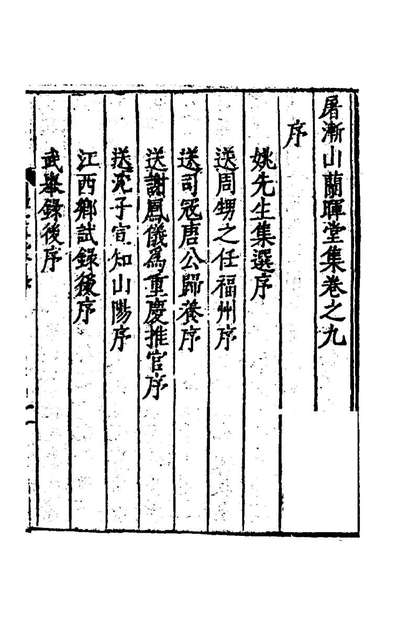 屠漸山蘭暉堂集卷之九
序
姚先生集選序
送周甥之任福州序
送司冦唐公歸養序
送謝鳳儀為重慶推官序
送沈子宣知山陽序
江西鄉試録後序
武舉録後序